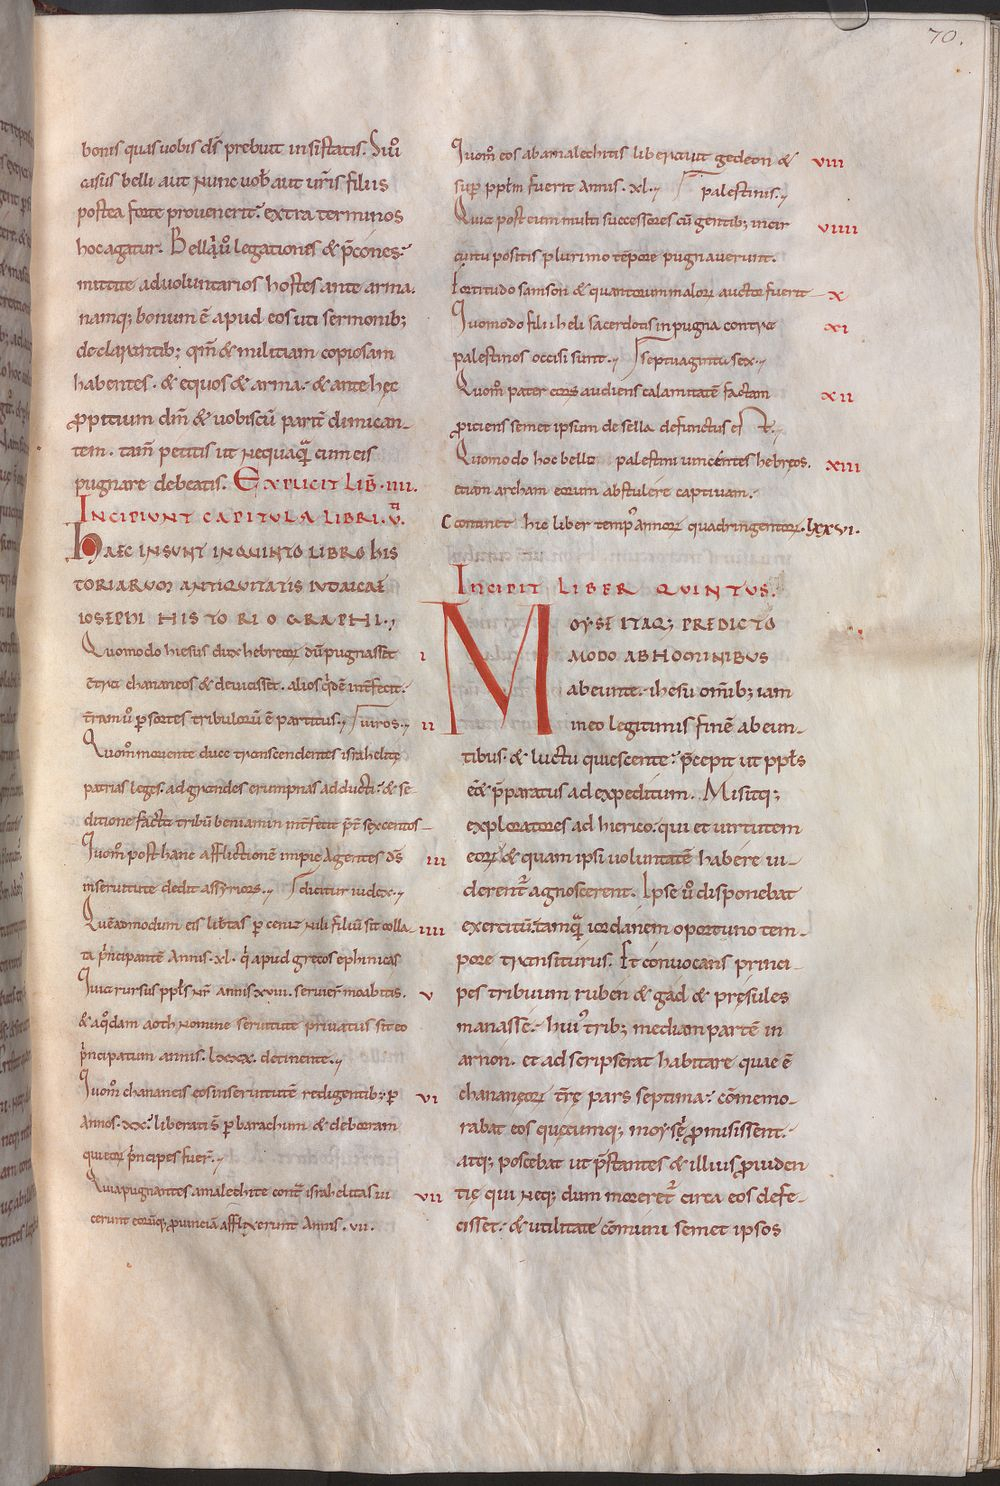 70.
bonis quas uobis ds̄ prebuit insistatis. Siu͛o
casus belli aut nunc uob̄ aut ur̄is filiis
postea forte prouenerit. extra terminos
hoc agatur. Bella q͛ru͛o legationes & p̄cones.
mittite ad uoluntarios hostes ante arma.
namq; bonum ē apud eos uti sermonib;
declarantib; qm̄ & militiam copiosam
habentes. & equos & arma. & ante hęc
ꝓpitium dm̄ & uobiscū parit̄ dimican-
tem. tam̄ petitis ut nequaq̄ cum eis
pugnare debeatis. EXPLICIT LIB̄. IIII.
INCIPIUNT CAPITULA LIBRI. V.
HAEC INSUNT IN QUINTO LIBRO HIS
TORIARUM ANTIQUITATIS IUDAICAE
IOSEPHI HISTORIOGRAPHI.,
Quomodo hiesus dux hebreoꝝ dū pugnasset I
cont̄ chananeos & deuicisset. alios q͛dē int̄fecit.
tr̄am u͛o ꝑ sortes tribulorū ē partitus., uiros., II
Quom̄ moriente duce transcendentes israhelitę
patrias leges. ad grandes erumpnas adducti. & se-
ditione facta tribū beniamin int̄fecit p̄t̄ sexcentos
Quom̄ post hanc afflictionē impie agentes ds̄ III
in seruitute dedit assyriors., dicitur iudex.,
Quēadmodum eis lib̄tas ꝑ ceniz nili filiū sit colla- IIII
ta p̄ncipantē annis. xl. q͛ apud grecos ephinicas
Quia rursus ppl̄s nr̄ annis xviii. seruier̄ moabitis. V
& a q͛odam aoth nomine seruitute priuatus sit eo
p̄ncipatum annis. lxxx. detinente.,
Quom̄ chananeis eos in seruitutē redigentib; ꝑ VI
annos. xx. liberati s̄ ꝑ barachum & deboram
qui eoꝝ p̄ncipes fuer̄.,
Quia pugnantes amalechite cont̄ israhelitas ui VII
cerunt eorūq; ꝓuinciā afflixerunt annis. vii.
Quom̄ eos ab amalechitis liberauit gedeon & VIII
sup̄ ppl̄m fuerit annis. xl., palestinis.,
Quia post eum multi successores cū gentib; in cir VIIII
cuitu positis plurimo tēpore pugnauerunt.
Fortitudo samson & quantorum maloꝝ auctor fuerit X
Quomodo filii heli sacerdotis in pugna contra XI
palestinos occisi sunt., septuaginta sex.,
Quom̄ pater eius audiens calamitatē factam XII
ꝓiciens semet ipsum de sella defunctus est.,
Quomodo hoc bello palestini uincentes hebreos. XIII
etiam archam eorum abstulere captiuam.
Continet hic liber temp᾽ annoꝝ quadringentoꝝ. lxxvi.
INCIPIT LIBER QUINTUS.
MOYSE ITAQ; PREDICTO
MODO AB HOMINIBUS
abeunte. ihesu om̄ib; iam
in eo legitimis finē abeun-
tibus. & luctu quiescente. p̄cepit ut ppl̄s
eē p̄paratus ad expeditum. Misitq;
exploratores ad hierico. qui et uirtutem
eoꝝ & quam ipsi uoluntatē habere ui-
derent̄ agnoscerent. Ipse u͛o disponebat
exercitū. tamq̄ iordanem oportuno tem-
pore transiturus. Et conuocans princi-
pes tribuum ruben & gad & pręsules
manasse. hui᾽ trib; mediam partē in
arnon. et ad scripserat habitare quae ē
chananęoꝝ tr̄ę pars septima. cōmemo-
rabat eos quęcumq; moysę ꝓmisissent.
atq; poscebat ut p̄stantes & illius ꝓuiden
tię qui neq; dum moreret̄ circa eos defe-
cisset. & utilitate cōmuni semet ipsos